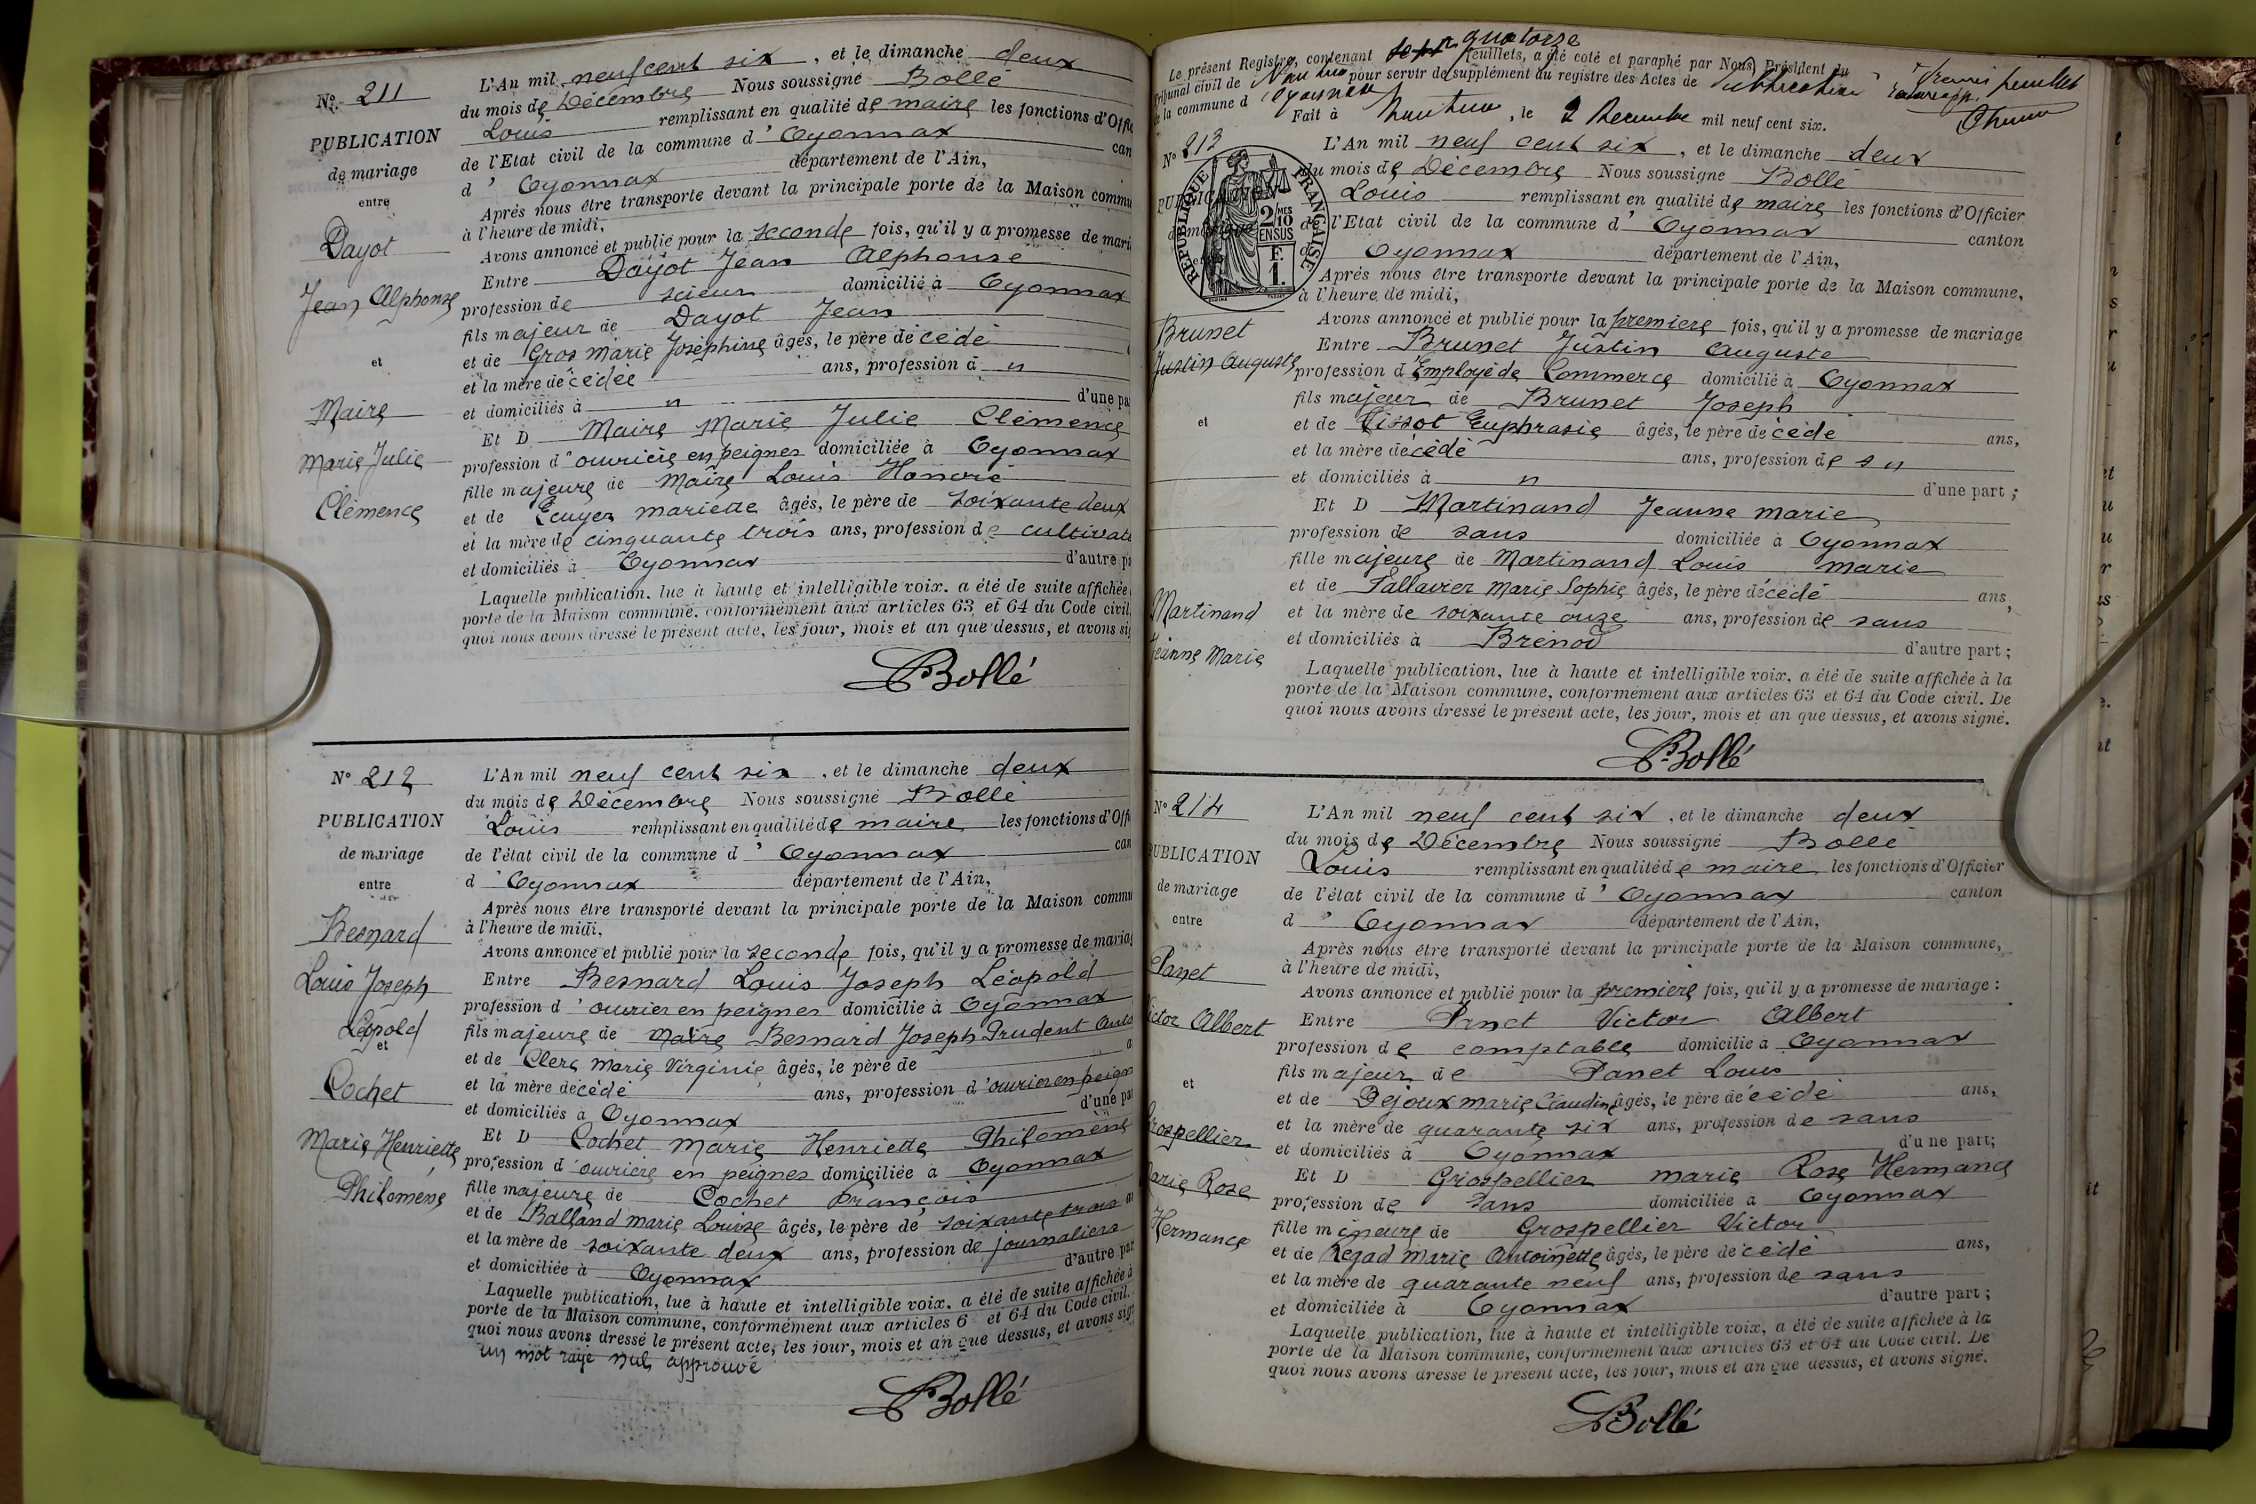 Nº 211
PUBLICATION
de mariage
entre
Dayot
Jean Alphonse
et
Maire
Marie Julie
Clémence
L'An mil neuf cent six, et le dimanche deux
du mois de Décembre Nous soussigné Bollé
Louis remplissant en qualité de maire les fonctions d'Offi
de l'Etat civil de la commune d' Oyonnax can
d' Oyonnax département de l'Ain,
Après nous être transporte devant la principale porte de la Maison commu
à l'heure de midi,
Avons annoncé et publié pour la seconde fois, qu'il y a promesse de mari
Entre Dayot Jean Alphonse
profession de scieur domicilié à Oyonnax
fils majeur de Dayot Jean
et de Gros Marie Joséphine âgés, le père décédé
et la mère décédée ans, profession d "
et domiciliés à " d'une pa
Et D Maire Marie Julie Clémence
profession d'ouvrière en peignes domiciliée à Oyonnax
fille majeure de Maire Louis Honoré
et de Ecuyer Mariette âgés, le père de soixante deux
et la mère de cinquante trois ans, profession de cultivat
et domiciliés à Oyonnax d'autre pa
Laquelle publication, lue à haute et intelligible voix, a été de suite affichée
porte de la Maison commune, conformément aux articles 63 et 64 du Code civil.
quoi nous avons dressé le présent acte, les jour, mois et an que dessus, et avons sig
Bollé
Nº 212
PUBLICATION
de mariage
entre
Besnard
Louis Joseph
Léopold
et
Cochet
Marie Henriette
Philomène
L'An mil neuf cent six, et le dimanche deux
du mois de Décembre Nous soussigné Bollé
Louis remplissant en qualité de maire les fonctions d'Offi
de l'état civil de la commune d' Oyonnax can
d' Oyonnax département de l'Ain,
Après nous être transporté devant la principale porte de la Maison commu
à l'heure de midi,
Avons annoncé et publié pour la seconde fois, qu'il y a promesse de maria
Entre Besnard Louis Joseph Léopold
profession d'ouvrier en peignes domicilié à Oyonnax
fils majeure de Maire Besnard Joseph Prudent
et de Clerc Marie Virginie âgés, le père de
et la mère décédé ans, profession d'ouvrier en peign
et domiciliés à Oyonnax d'une pa
Et D Cochet Marie Henriette Philomène
profession d'ouvrière en peignes domiciliée à Oyonnax
fille majeure de Cochet François
et de Balland Marie Louise âgés, le père de soixante trois
et la mère de soixante deux ans, profession de journaliers
et domiciliée à Oyonnax d'autre par
Laquelle publication, lue à haute et intelligible voix, a été de suite affichée à
porte de la Maison commune, conformément aux articles 6 et 64 du Code civil.
quoi nous avons dressé le présent acte, les jour, mois et an que dessus, et avons sign
un mot rayé nul approuvé
Bollé
Le présent Registre, contenant quatorze feuillets, a été coté et paraphé par Nous, Président du
Tribunal civil de Nantua pour servir de supplément au registre des Actes de Publication
de la commune d'Oyonnax
Premier feuillet
Fait à Nantua, le 2 Décembre mil neuf cent six.
Nº 213
PUBLICATION
de mariage
RÉPUBLIQUE FRANÇAISE
2/10 MES
EN SUS
F.
1.
Brunet
Justin Auguste
et
Martinand
Jeanne Marie
L'An mil neuf cent six, et le dimanche deux
du mois de Décembre Nous soussigné Bollé
Louis remplissant en qualité de maire les fonctions d'Officier
de l'Etat civil de la commune d' Oyonnax canton
d Oyonnax département de l'Ain,
Après nous être transporte devant la principale porte de la Maison commune,
à l'heure de midi,
Avons annoncé et publié pour la première fois, qu'il y a promesse de mariage
Entre Brunet Justin Auguste
profession d'Employé de Commerce domicilié à Oyonnax
fils majeur de Brunet Joseph
et de Tissot Euphrasie âgés, le père décédé ans,
et la mère décédé ans, profession de s "
et domiciliés à " d'une part ;
Et D Martinand Jeanne Marie
profession de sans domiciliée à Oyonnax
fille majeure de Martinand Louis Marie
et de Pallavier Marie Sophie âgés, le père décédé ans,
et la mère de soixante onze ans, profession de sans
et domiciliés à Brénod d'autre part ;
Laquelle publication, lue à haute et intelligible voix, a été de suite affichée à la
porte de la Maison commune, conformément aux articles 63 et 64 du Code civil. De
quoi nous avons dressé le présent acte, les jour, mois et an que dessus, et avons signé.
Bollé
Nº 214
PUBLICATION
de mariage
entre
Panet
Victor Albert
et
Grospellier
Marie Rose
Hermance
L'An mil neuf cent six, et le dimanche deux
du mois de Décembre Nous soussigné Bollé
Louis remplissant en qualité de maire les fonctions d'Officier
de l'état civil de la commune d' Oyonnax canton
d' Oyonnax département de l'Ain,
Après nous être transporté devant la principale porte de la Maison commune,
à l'heure de midi,
Avons annoncé et publié pour la première fois, qu'il y a promesse de mariage :
Entre Panet Victor Albert
profession de comptable domicilié à Oyonnax
fils majeur de Panet Louis
et de Dejoux Marie Claudine âgés, le père décédé ans,
et la mère de quarante six ans, profession de sans
et domiciliés à Oyonnax d'une part;
Et D Grospellier Marie Rose Hermance
profession de sans domiciliée à Oyonnax
fille mineure de Grospellier Victor
et de Regad Marie Antoinette âgés, le père décédé ans,
et la mère de quarante neuf ans, profession de sans
et domiciliée à Oyonnax d'autre part ;
Laquelle publication, lue à haute et intelligible voix, a été de suite affichée à la
porte de la Maison commune, conformément aux articles 63 et 64 du Code civil. De
quoi nous avons dressé le présent acte, les jour, mois et an que dessus, et avons signé.
Bollé